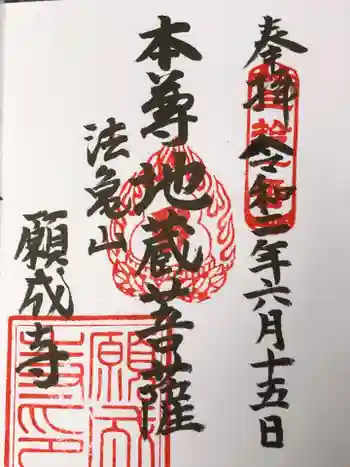 奉拝 令和二年六月十五日
本尊 地蔵菩薩
法亀山
願成寺